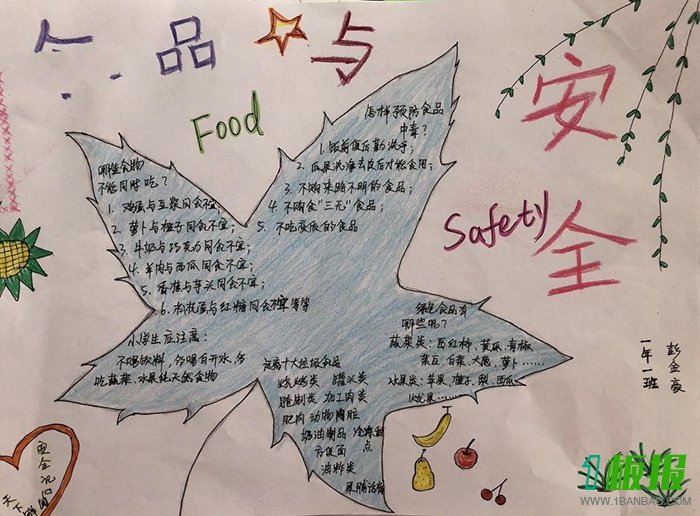 品与
安全
Food
Safety
怎样预防食品
中毒？
1. 饭前便后勤洗手；
2. 瓜果洗净去皮后才能食用；
3. 不购来路不明的食品；
4. 不购食“三无”食品；
5. 不吃变质的食品
哪些食物
不能同时吃？
1. 鸡蛋与豆浆同食不宜；
2. 萝卜与橙子同食不宜；
3. 牛奶与巧克力同食不宜；
4. 羊肉与西瓜同食不宜；
5. 香蕉与芋头同食不宜；
6. 松花蛋与红糖同食不宜等等
小学生应注意：
不喝饮料，多喝白开水，多
吃蔬菜、水果纯天然食物
十大垃圾食品
烧烤类 罐头类
腌制类 加工肉类
肥肉 动物内脏
奶油制品 冷冻甜
方便面 点
油炸类
果脯话梅
绿色食品有
哪些呢？
蔬菜类：西红柿，黄瓜，青椒
菜豆，白菜，大葱，萝卜……
水果类：苹果，橙子，梨，西瓜
火龙果……
一年一班
彭金豪
安全记心
天天
1板报
WWW.1BANBAO.COM